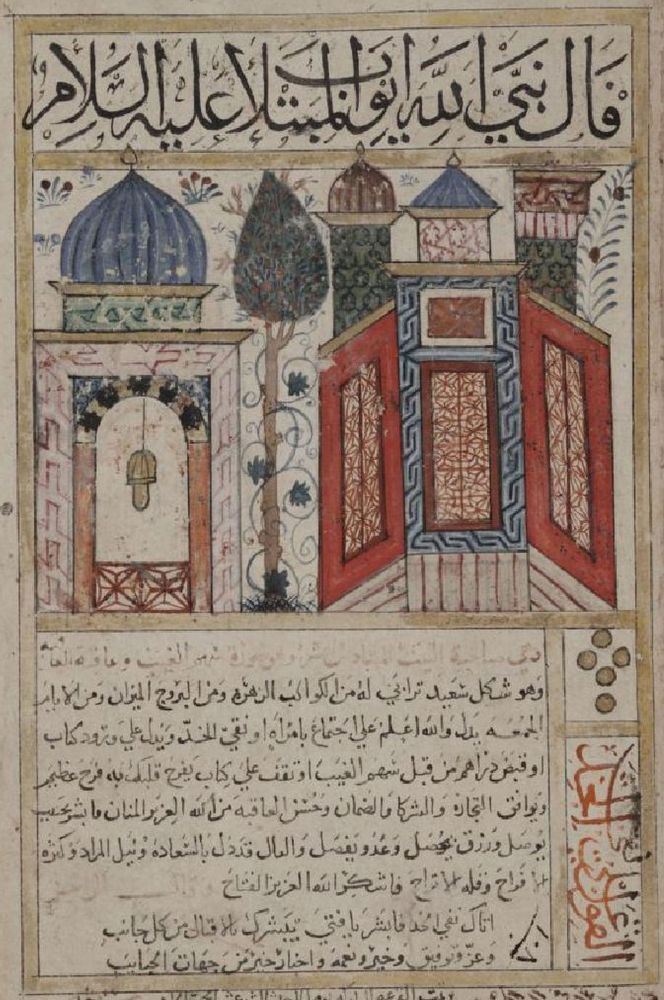 قال نبي الله ايوب المبتلا عليه السلام
سهم الغيب وعاقبة
وهو شكل سعيد ترابي له من الكواكب الزهره ومن البروج الميزان ومن الايام
الجمعه يدل والله اعلم علي اجتماع بامراه او نقي الخد ويدل علي ورود كتاب
او قبض دراهم من قبل سهم الغيب او تقف علي كتاب يفرح قلبك به فرح عظيم
وتوافق التجاره والشركا والضمان وحسن العاقبه من الله العزيز المنان فابشر بحبيب
يوصل ورزق يحصل وعدو ينفصل والفال قد دل بالسعاده ونيل المراد وكثرة
الافراح وقلة الاتراح فاشكر الله العزيز الفتاح
اتاك نقي الخد فابشر يا فتي يبشرك بالاقبال من كل جانب
وعز وتوفيق وخير ونعمه واخبار خير من جهات الحبايب